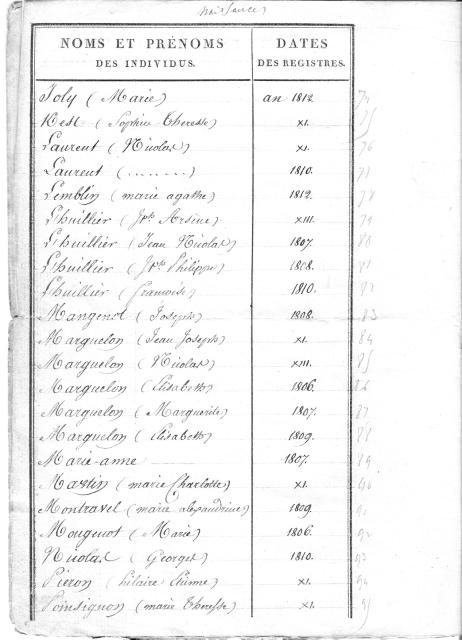 Naissances
NOMS ET PRÉNOMS DATES
DES INDIVIDUS. DES REGISTRES.
Joly (Marie) an 1812 74
Kest (Sophie Theresse) XI. 75
Laurent (Nicolas) XI. 76
Laurent (........) 1810. 77
Lemblin (marie agathe) 1812. 78
Lhuillier (Jph Arsène) XIII. 79
Lhuillier (Jean Nicolas) 1807. 80
Lhuillier (Jph Philippe) 1808. 81
Lhuillier (françoise) 1810. 82
Mangenot (Joseph) 1808. 83
Marguelon (Jean Joseph) XI. 84
Marguelon (Nicolas) XIII. 85
Marguelon (Elisabeth) 1806. 86
Marguelon (Marguerite) 1807. 87
Marguelon (Elisabeth) 1809. 88
Marie-anne 1807. 89
Martin (marie Charlotte) XI. 90
Montravel (marie alexandrine) 1809. 91
Mougenot (Marie) 1806. 92
Nicolas (Georges) 1810. 93
Pieron (hilaire Etienne) XI. 94
Poinsignon (marie Theresse) XI. 95